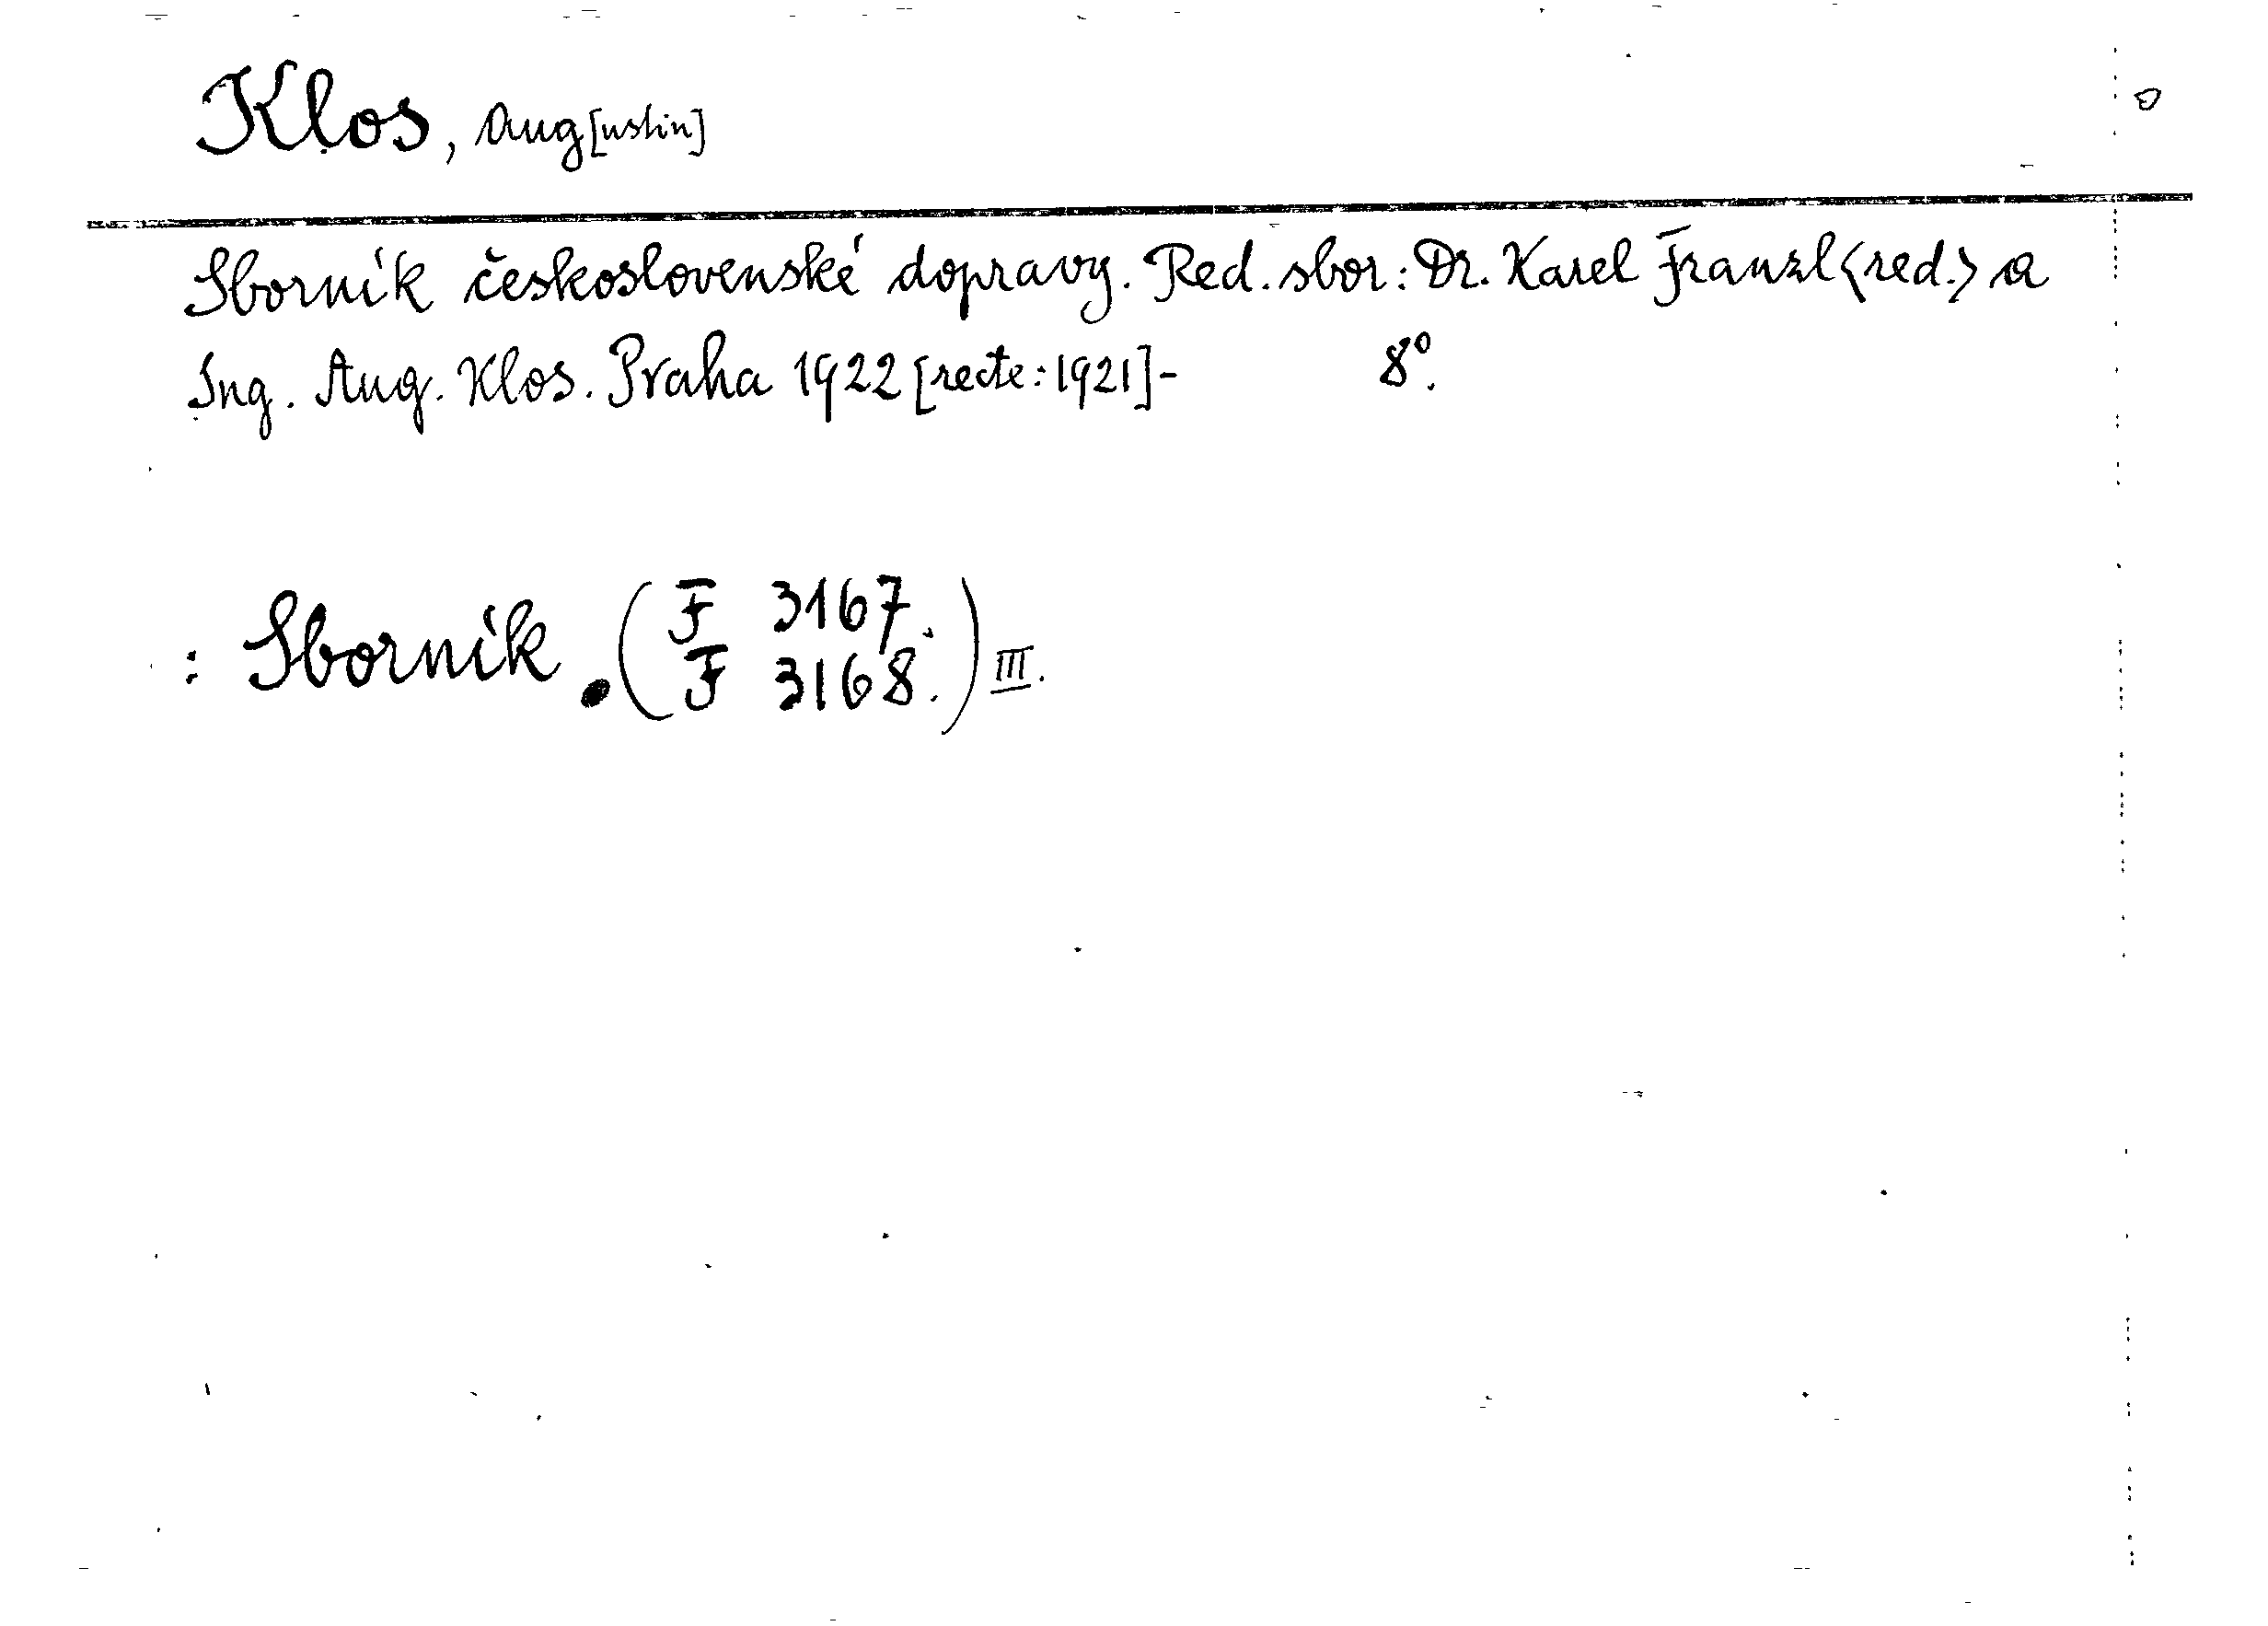 Klos, Aug[ustin]
Sborník československé dopravy. Red. sbor: Dr. Karel Franzl <red.> a
Ing. Aug. Klos. Praha 1922 [recte: 1921]- 8°.
: Sborník. (F 3167.
F 3168.) III.